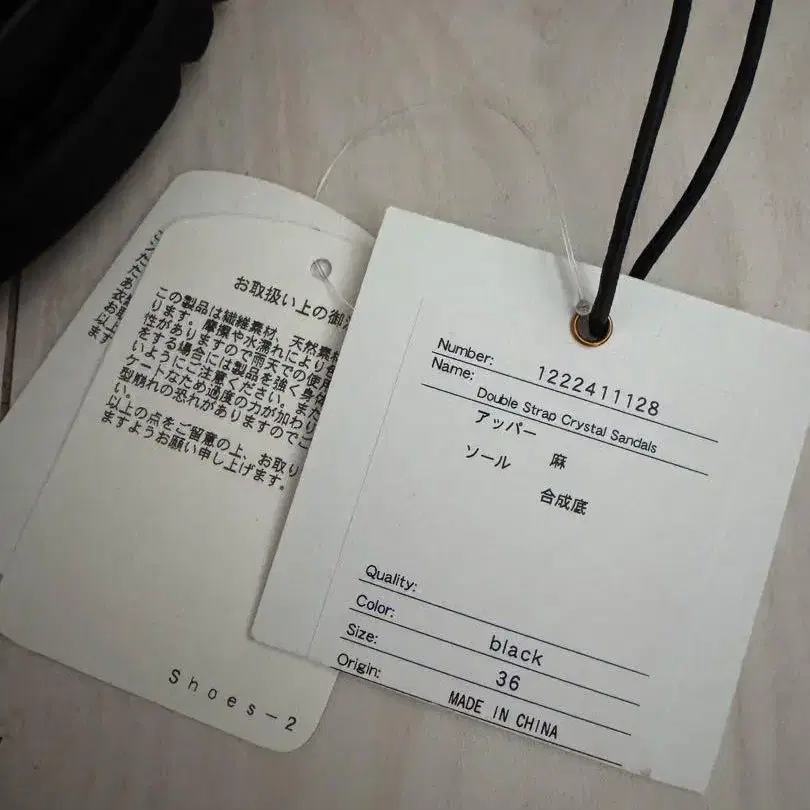 お取扱い上の御
この製品は繊維素材、天然素材
ります。摩擦や水濡れにより色
性がありますので雨天での使用
をする場合には製品を強く身体
いようにご注意ください。また
ケートなため過度の力が加わり
型崩れの恐れがありますのでご
い。
以上の点をご留意の上、お取り
ますようお願い申し上げます。
Shoes-2
Number: 1222411128
Name: Double Strap Crystal Sandals
アッパー 麻
ソール 合成底
Quality:
Color: black
Size: 36
Origin: MADE IN CHINA